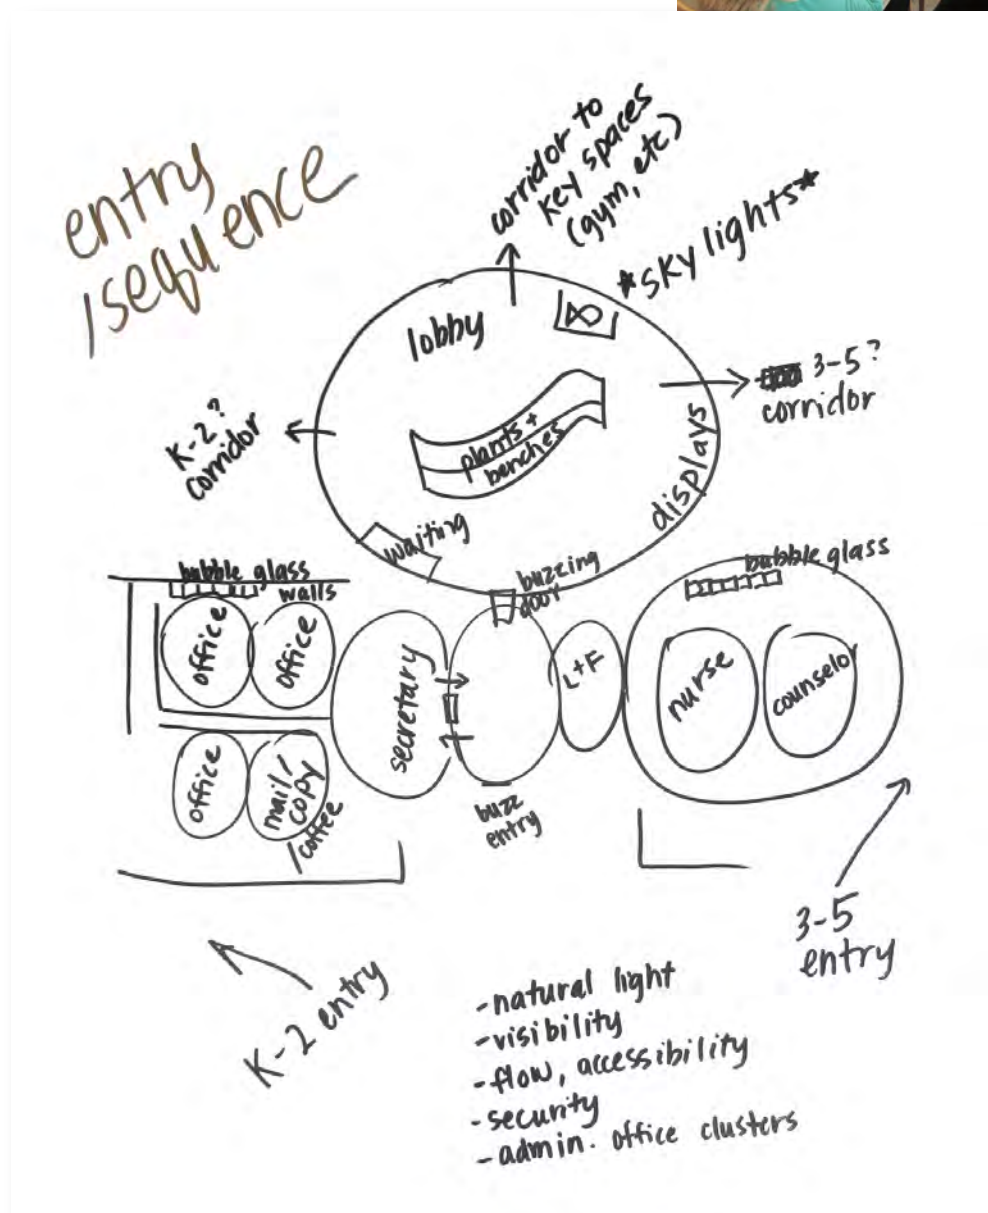 entry
/sequence
corridor to
key spaces
(gym, etc)
*sky lights*
lobby
3-5?
corridor
K-2?
corridor
plants +
benches
displays
waiting
buzzing
door
bubble glass
walls
bubble glass
office
office
secretary
L+F
nurse
counselor
office
mail/
copy
/coffee
buzz
entry
3-5
entry
K-2 entry
-natural light
-visibility
-flow, accessibility
-security
-admin. office clusters